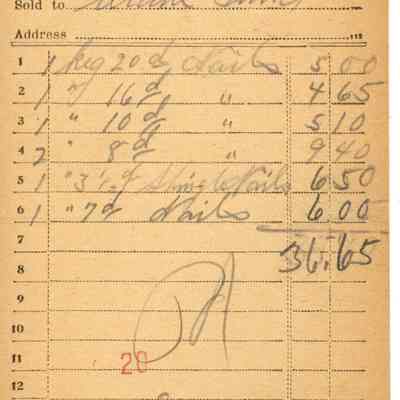 Sold to
Address
1 1 Keg 20d Nails 5 00
2 1 " 16d " 4 65
3 1 " 10d " 5 10
4 2 " 8d " 9 40
5 1 " 3½d Shingle Nails 6 50
6 1 " 7d Nails 6 00
7
8 36.65
9
10
11 20
12